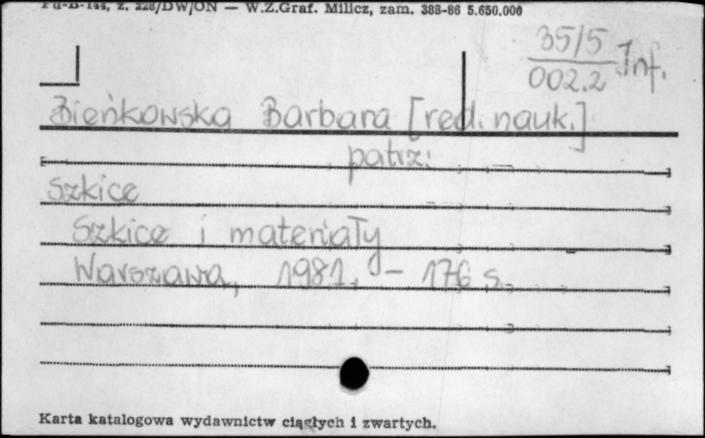 Pu-B-144, z. 228/DW/ON — W.Z.Graf. Milicz, zam. 388-86 5.650.000
35/5
002.2 Inf.
Bieńkowska Barbara [red. nauk.]
patrz:
Szkice
Szkice i materiały
Warszawa, 1981. - 176 s.
Karta katalogowa wydawnictw ciągłych i zwartych.